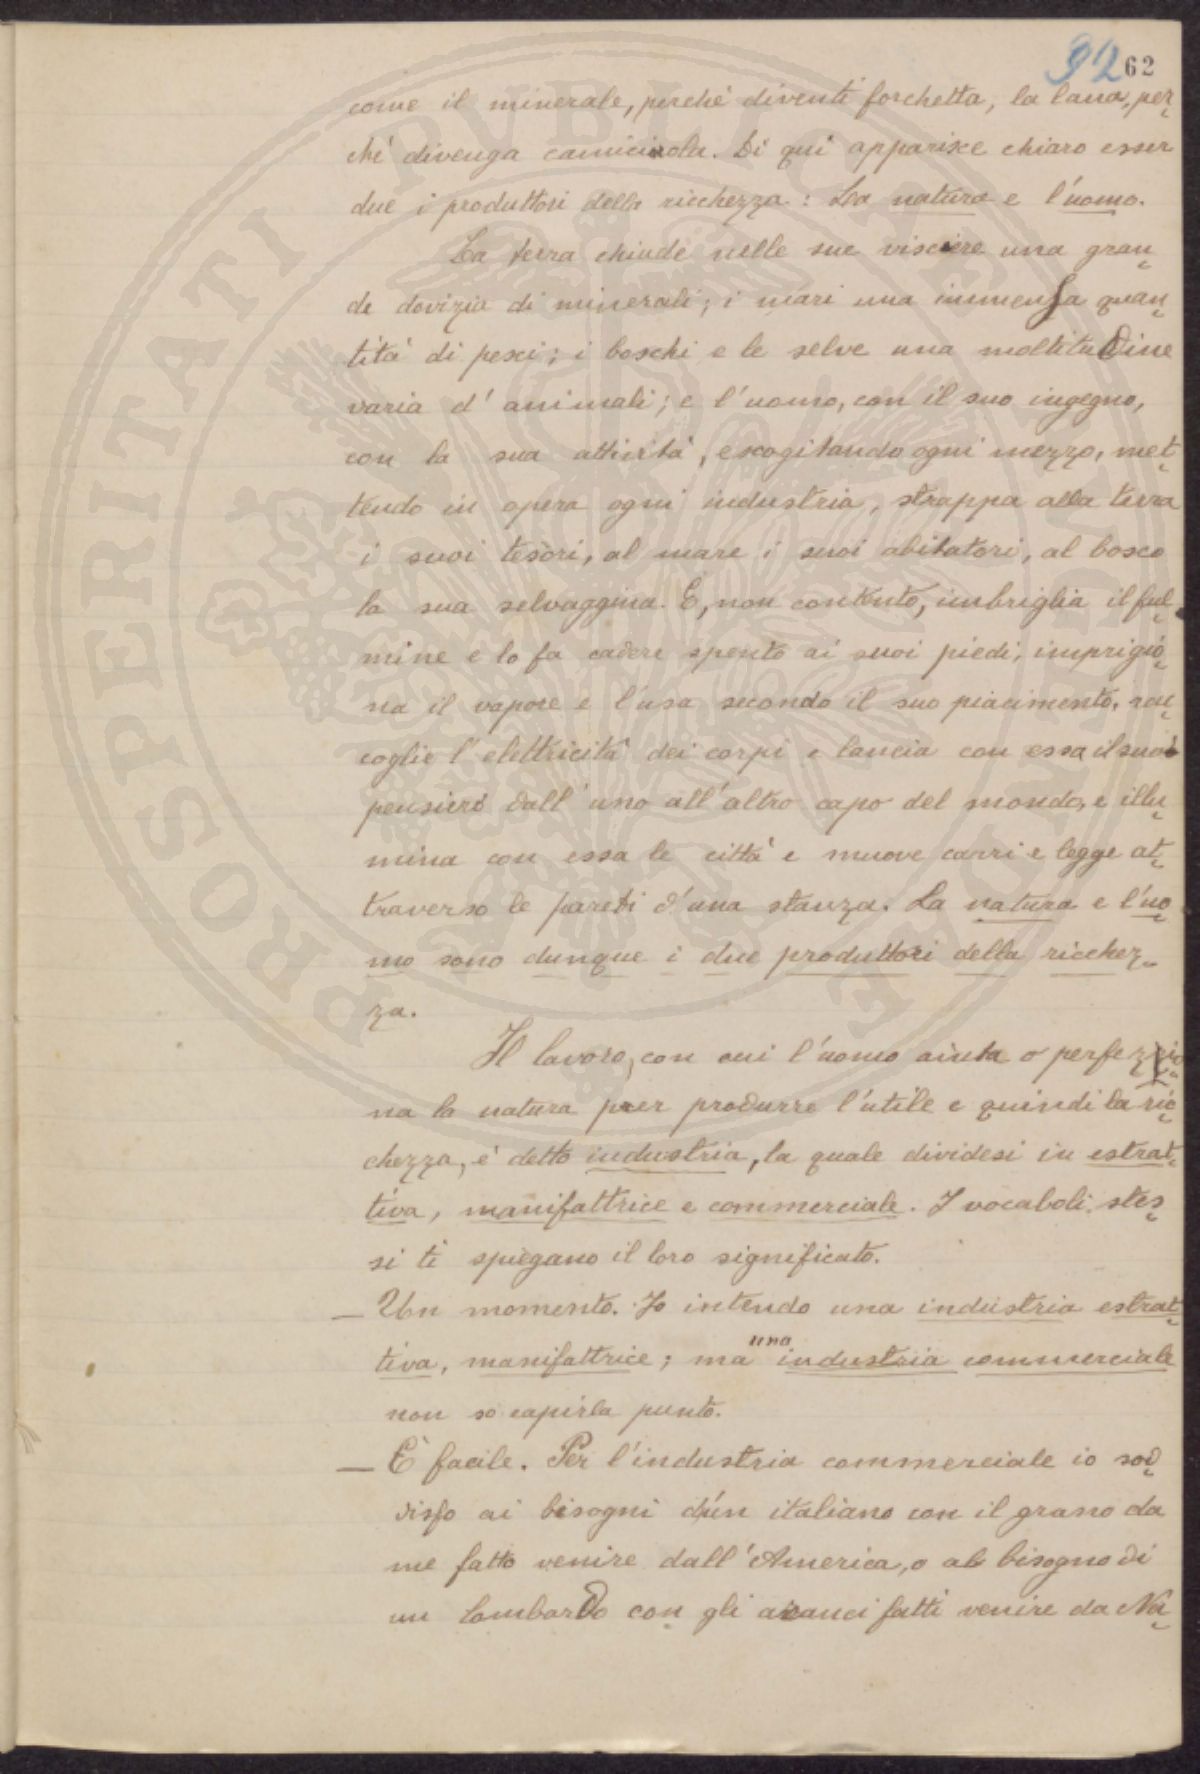 92 62
come il minerale, perchè diventi forchetta, la lana, per-
chè divenga camiciuola. Di qui apparisce chiaro esser
due i produttori della ricchezza: La natura e l'uomo.
La terra chiude nelle sue viscere una gran-
de dovizia di minerali; i mari una immensa quan-
tità di pesci; i boschi e le selve una moltitudine
varia d'animali; e l'uomo, con il suo ingegno,
con la sua attività, escogitando ogni mezzo, met-
tendo in opera ogni industria, strappa alla terra
i suoi tesori, al mare i suoi abitatori, al bosco
la sua selvaggina. E, non contento, imbriglia il ful-
mine e lo fa cadere spento ai suoi piedi, imprigio-
na il vapore e l'usa secondo il suo piacimento,
coglie l'elettricità dei corpi e lancia con essa il suo
pensiero dall'uno all'altro capo del mondo, e illu-
mina con essa le città e muove carri e legge at-
traverso le pareti d'una stanza. La natura e l'uo-
mo sono dunque i due produttori della ricchez-
za.
Il lavoro, con cui l'uomo aiuta o perfezio-
na la natura per produrre l'utile e quindi la ric-
chezza, è detto industria, la quale dividesi in estrat-
tiva, manifattrice e commerciale. I vocaboli stes-
si ti spiegano il loro significato.
— Un momento. Io intendo una industria estrat-
tiva, manifattrice; ma una industria commerciale
non so capirla punto.
— È facile. Per l'industria commerciale io sod-
disfo ai bisogni d'un italiano con il grano da
me fatto venire dall'America, o al bisogno di
un lombardo con gli aranci fatti venire da Na-
PROSPERITATI PVBLICAE